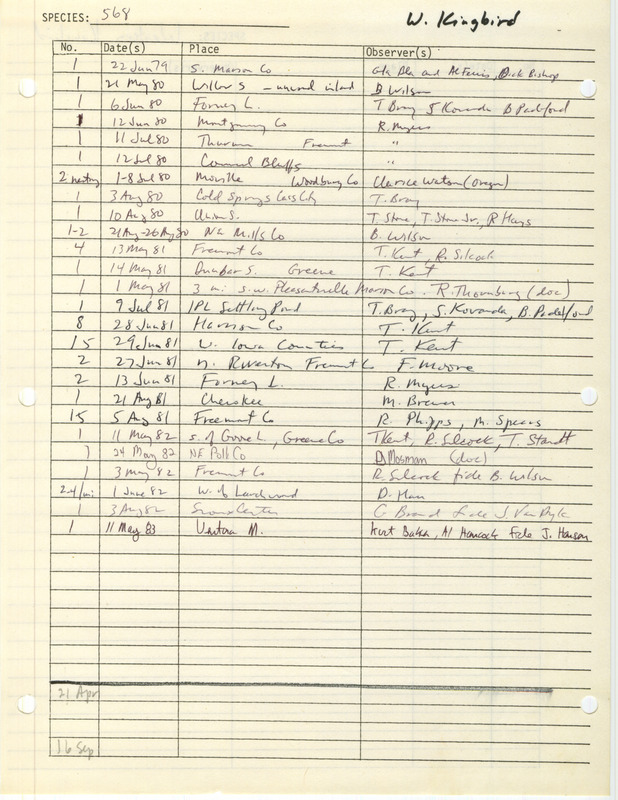 SPECIES: 568 W. Kingbird
No. Date(s) Place Observer(s)
1 22 Jun 79 S. Marion Co Gla Bla and Al Ferris, Dick Bishop
1 21 May 80 Wilbur S - unusual island B Wilson
1 6 Jun 80 Forney L. T. Bray S Kovanda B Padelford
1 12 Jun 80 Montgomery Co R. Myers
1 11 Jul 80 Thurman Fremont "
1 12 Jul 80 Council Bluffs "
2 nesting 1-8 Jul 80 Moville Woodbury Co Clarice Watson (Oregon)
1 3 Aug 80 Cold Springs Cass City T. Bray
1 10 Aug 80 Union S. T. Stone, T. Stone Jr, R Hays
1-2 21 Aug-26 Aug 80 NE Mills Co B. Wilson
4 13 May 81 Fremont Co T. Kent, R. Silcock
1 14 May 81 Dunbar S. Greene T. Kent
1 1 May 81 3 mi s.w. Pleasantville Marion Co. R. Thornburg (doc)
1 9 Jul 81 IPL Settling Pond T. Bray, S. Kovanda, B. Padelford
8 28 Jun 81 Harrison Co T. Kent
15 29 Jun 81 W. Iowa Counties T. Kent
2 27 Jun 81 n. Riverton Fremont Co F. Moore
2 13 Jun 81 Forney L. R. Myers
1 21 Aug 81 Cherokee M. Brewer
15 5 Aug 81 Freemont Co R. Phipps, M. Speers
1 11 May 82 s. of Goose L., Greene Co T Kent, R. Silcock, T. Staudt
1 24 May 82 NE Polk Co D Mosman (doc)
1 3 May 82 Fremont Co R. Silcock fide B. Wilson
2-4/mi 1 June 82 W. of Larchwood D.
1 3 Aug 82 Sioux Center C Brand fide J Van Dyk
1 11 May 83 Ventura M. Kurt Bakker, Al Hancock fide J. Hansen
21 Apr
16 Sep